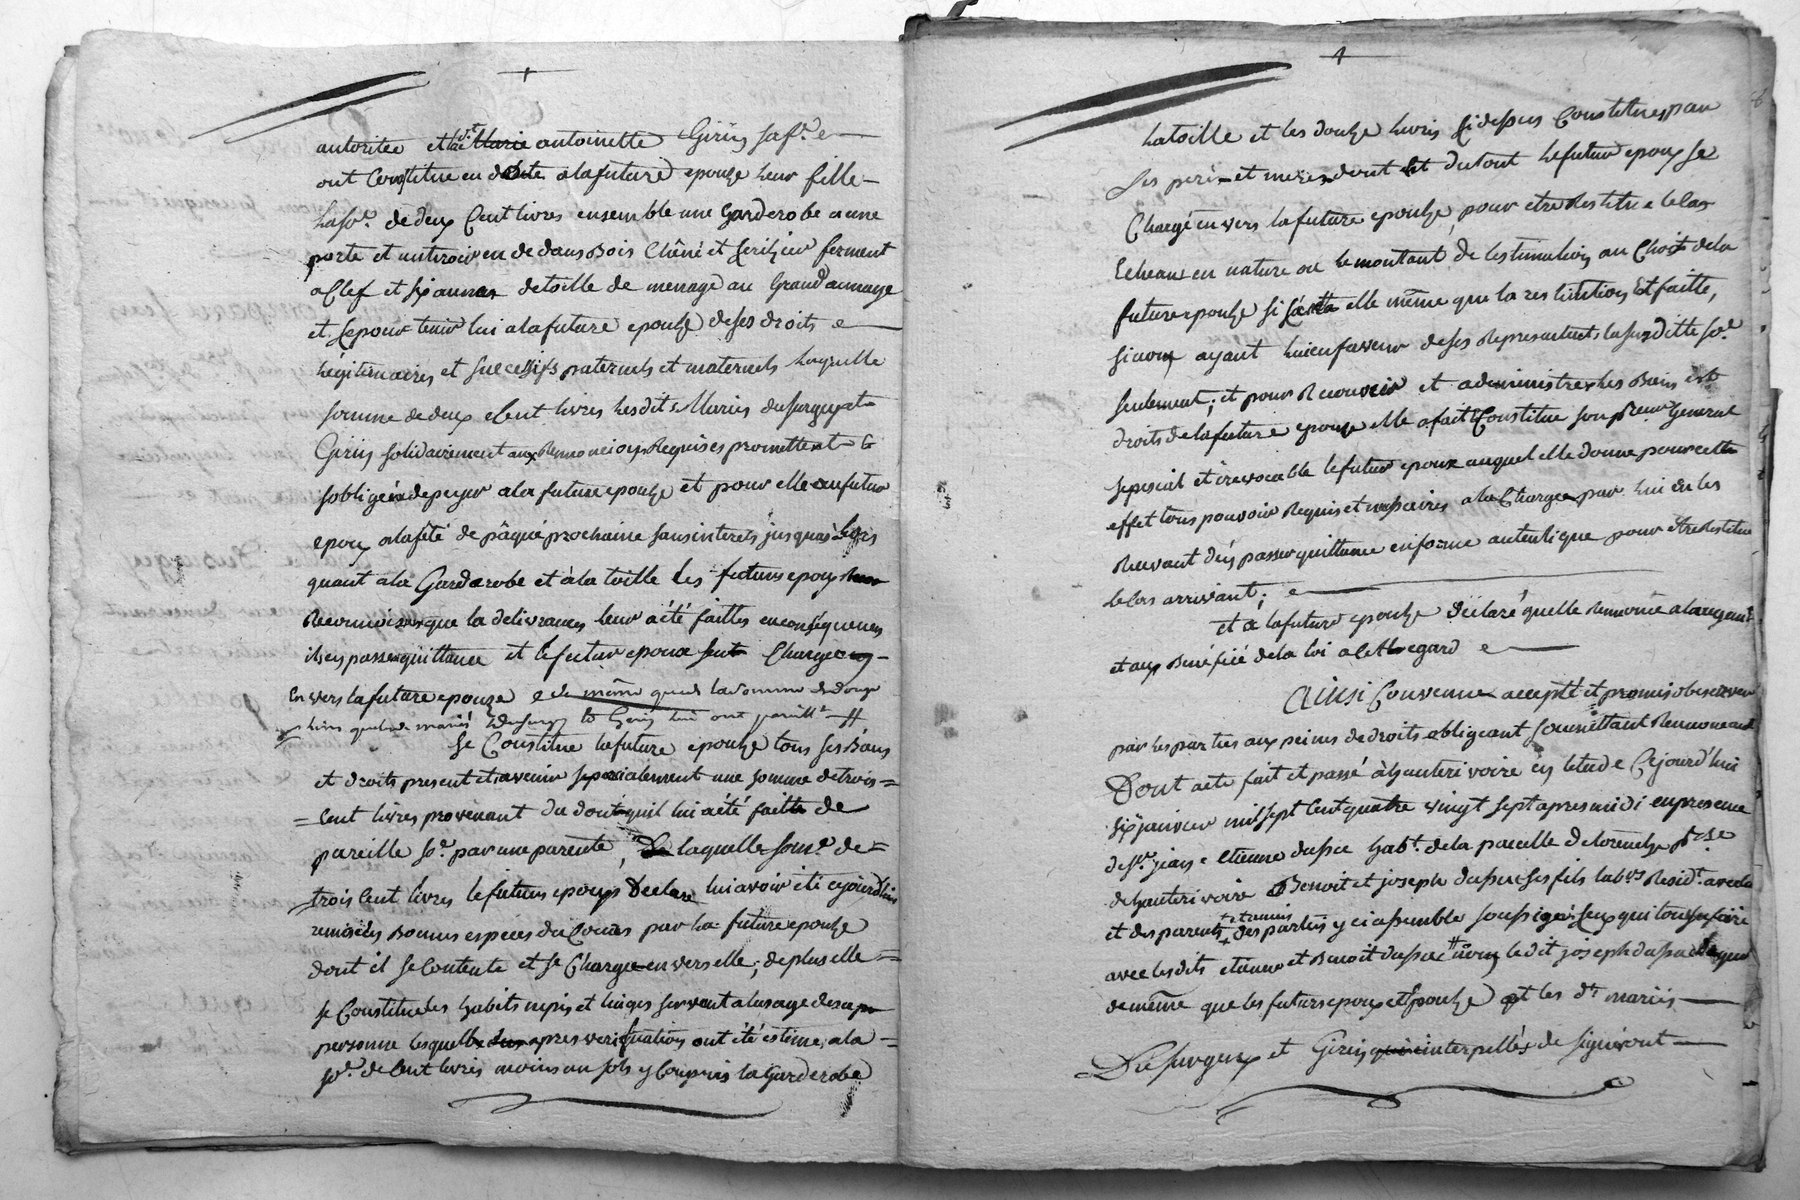 autoritée et Marie antoinette Giriņ safe. e
ont Constitue en dotte ala future epouze leur fille
la so.e de deux Cent livres ensemble une Garderobe a une
porte et un tiroir en dedans Bois Chêne et Serizier ferment
a Clef et six aunes de toille de menage au Grand aunage
et ce pour tenir lui a la future epouze de ses droits e
légitimaires et successifs paternels et maternels laquelle
somme de deux Cent livres lesdits Mariés dusurgey et
Giriņ solidairement aux Renonciations Requises promettent &
sobligent de payer a la future epouze et pour elle au futur
epoux a la fête de pâque prochaine sans interets jusques à Lors
quant a la Garderobe et à la toille les futurs epoux
Reconnoissent que la delivrances leur a été faittes en conséquences
ils en passent quittance et le futur epoux sent Charge
en vers la future epouze e de même que de la somme de douze
livres que lesdits mariés
se Constitue la future epouze tous ses Biens
et droits present et avenir specialement une somme de trois
Cent livres provenant du dont quil lui a été faitte de
pareille so.e par une parente, laquelle som.e de
trois Cent livres le futurs epoux Declare lui avoir été cejourd'hui
remise en Bonnes espèces du Cours par la future epouze
dont il se Contente et se Charge en vers elle; de plus elle
se Constitue les habits nipes et linges servant a lusage de sa
personne lesquelles apres verification ont été estimé a la
so.e de Cent livres moins un sols y Compris la Garderobe
la toille et les douze livres Cidessus Constitues par
Les peres et meres dont et du tout le futur epoux se
Charge en vers la future epouze, pour etre Restitue le Cas
Echeant en nature ou le montant de lestimation au Choix de la
future epouze si C'est a elle même que la restitution Est faitte,
sinon ayant lieu en faveur de ses Representants la susditte so.e
seulement; et pour Recouvrir et administrer les Biens et
droits de la future epouze elle a fait et Constitue son Preur General
special et irevocable le futur epoux auquel elle donne pour cette
effet tous pouvoir Requis et nessaires a la Charge par lui en les
Recevant d'en passer quittance en forme autentique pour etre Restitue
le Cas arrivant; e
et a la future epouze déclaré quelle Renonce a
et aux Bénéfice de la loi a cet egard e
Ainsi Convenu accepté et promis observer
par les parties aux peines de droits obligeant soumettant Renonceant
Dont acte fait et passé à hauterivoire en letude Cejourd'hui
six janvier mil sept Cent quatre vingt sept apres midi en presence
de sr. jean e Etienne dupuc hab.t de la parcelle de pse
de hauterivoire Benoit et joseph dupuc ses fils lab.rs Resid.t avec lui
et des parents et amis des parties y ci assemble soussignés Ceux qui ont su faire
avec lesdits etienne et Benoit dupuc non ledit joseph dupuc
de même que les futurs epoux et Epouze et les dt. mariés
Dusurgey et Giriņ interpellés de signé ont